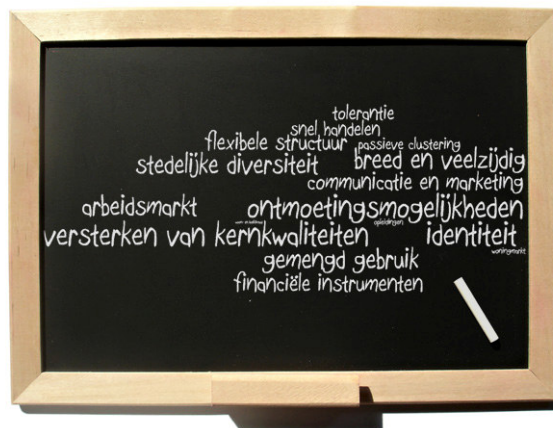 tolerantie
snel handelen
flexibele structuur passieve clustering
stedelijke diversiteit breed en veelzijdig
communicatie en marketing
arbeidsmarkt ontmoetingsmogelijkheden
opleidingen
versterken van kernkwaliteiten identiteit
woningmarkt
gemengd gebruik
financiële instrumenten